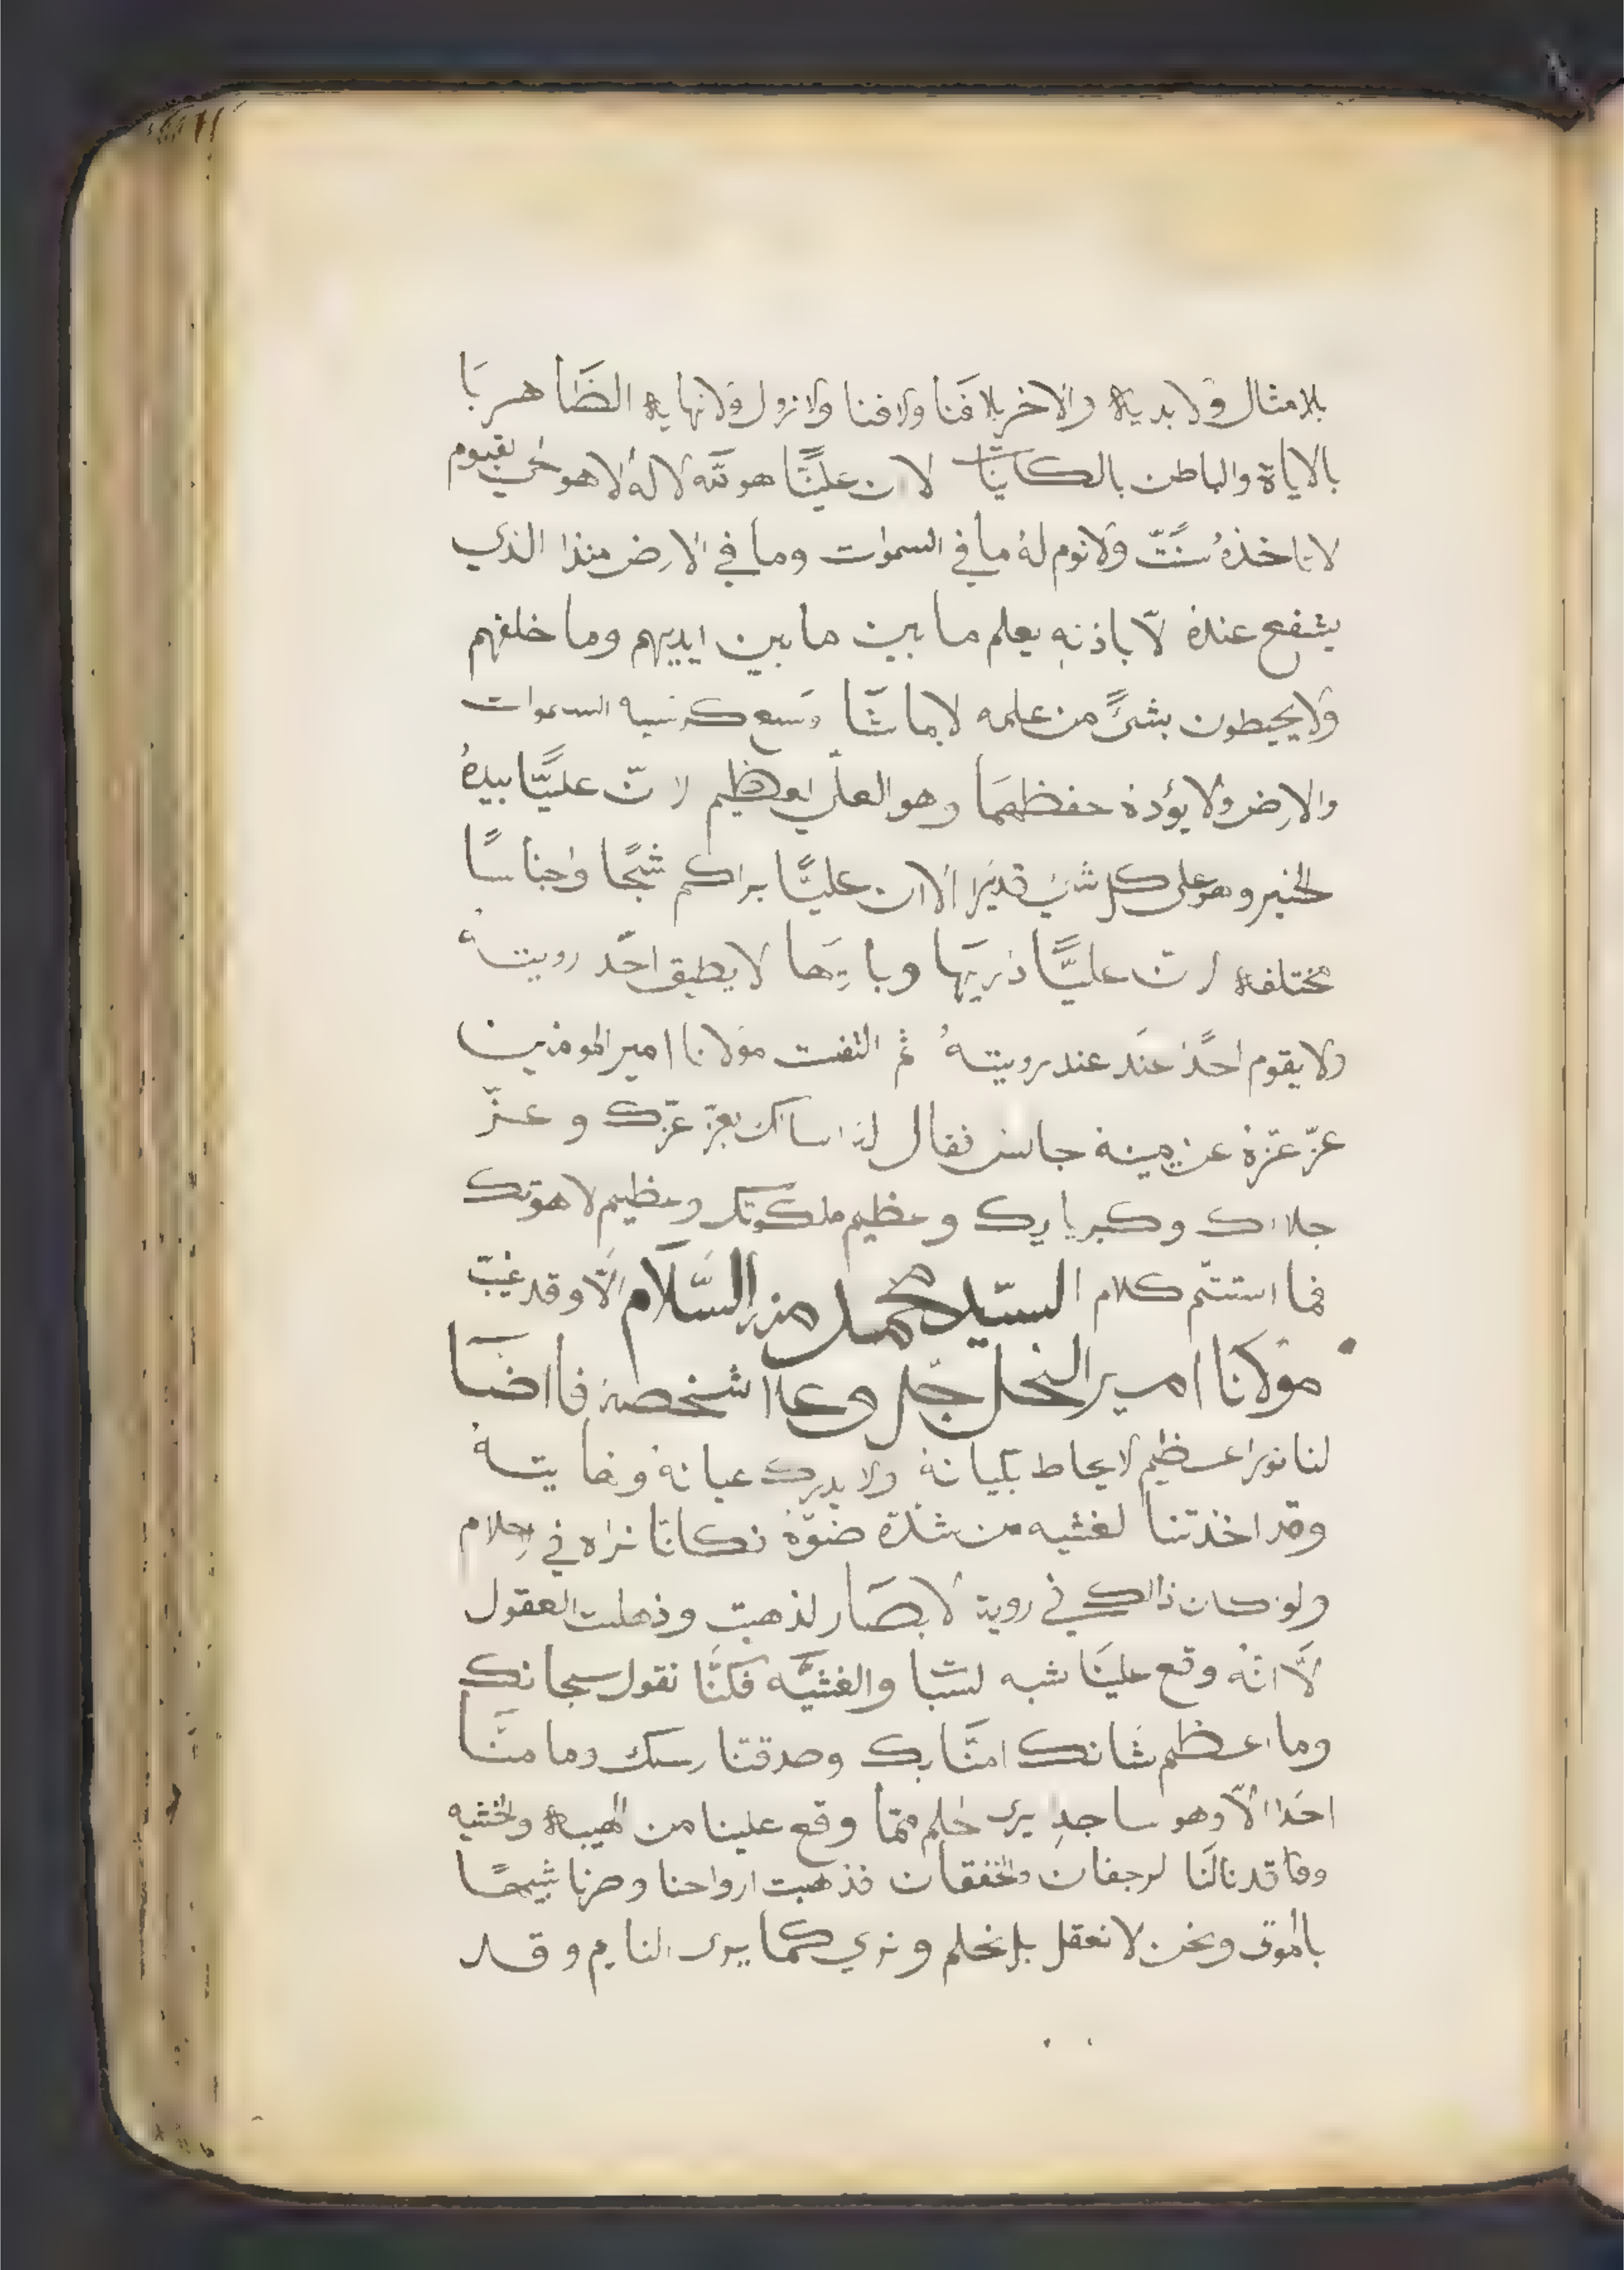 بلا مثال ولا بدياة والاخر بلا فَنا ولا فنا ولا نزول ولا نهاية الظَاهر بَا
بالاياة والباطن بالكاينات لان عليًّا هو الله لا اله الا هو الحي القيوم
لا تاخذهُ سنَتّ ولا نوم لهُ ما في السموات وما في الارض منذا الذي
يشفع عندهُ لاّ باذنهِ يعلم ما بين ما بين ايديهم وما خلفهم
ولا يحيطون بشئً من علمه لا بما شَا وسع كرسيه السموات
والارض ولا يؤده حفظهمَا وهو العلي العظيم لا نّ عليًّا بيدهُ
الخير وهو على كل شئ قديرًا الا ان عليًّا يراكم شبحًا واجناسًا
مختلفة لا نّ عليًّا ذاريَها وباريَها لا يطيق احّد رويتهُ
ولا يقوم احًد عنَد عند رويتهُ ثم التفت مولانا امير المومنين
عزّ عزّهُ عن يمينهُ جالس فقال لهُ اسالك بعزّ عزّك و عزّ
جلالك وكبريايك وعظيم ملكوتك وعظيم لاهوتك
فما استتّم كلام السّيد محمد منه السَّلَام الاَّ وقد غيبّ
مولانا امير النحل جلّ وعلا شخصهُ فااضَا
لنا نورا عظيم لا يحاط بكيانهُ ولا يدرك عيانهُ وغايتهُ
وقد اخذتنا لغشيه من شدّة ضوّهُ فكاننا نراه في احلام
ولو كان ذالك في روية لابصَار لذهبت وذهلت العقول
لاَّ انهُ وقع علينَا شبه لسّبا والغشيَّه فكنَّا نقول سبحانك
وما اعظم شانك امنَّا بك وصدقنا رسلك وما منَّا
احدَا الاّ وهو ساجدِ يرى حلم ممّا وقع علينا من الهيباة والخشيه
وقد نالنَا لرجفان والخفقان فذهبت ارواحنا وصرنا شبحًا
بالموتى ونحن لا نعقل بل نحلم ونري كما يرى النايم وقد